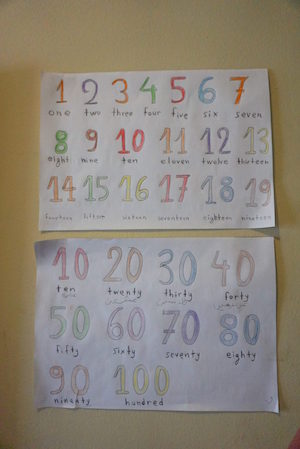 1 2 3 4 5 6 7
one two three four five six seven
8 9 10 11 12 13
eight nine ten eleven twelve thirteen
14 15 16 17 18 19
fourteen fifteen sixteen seventeen eighteen nineteen
10 20 30 40
ten twenty thirty forty
50 60 70 80
fifty sixty seventy eighty
90 100
ninenty hundred